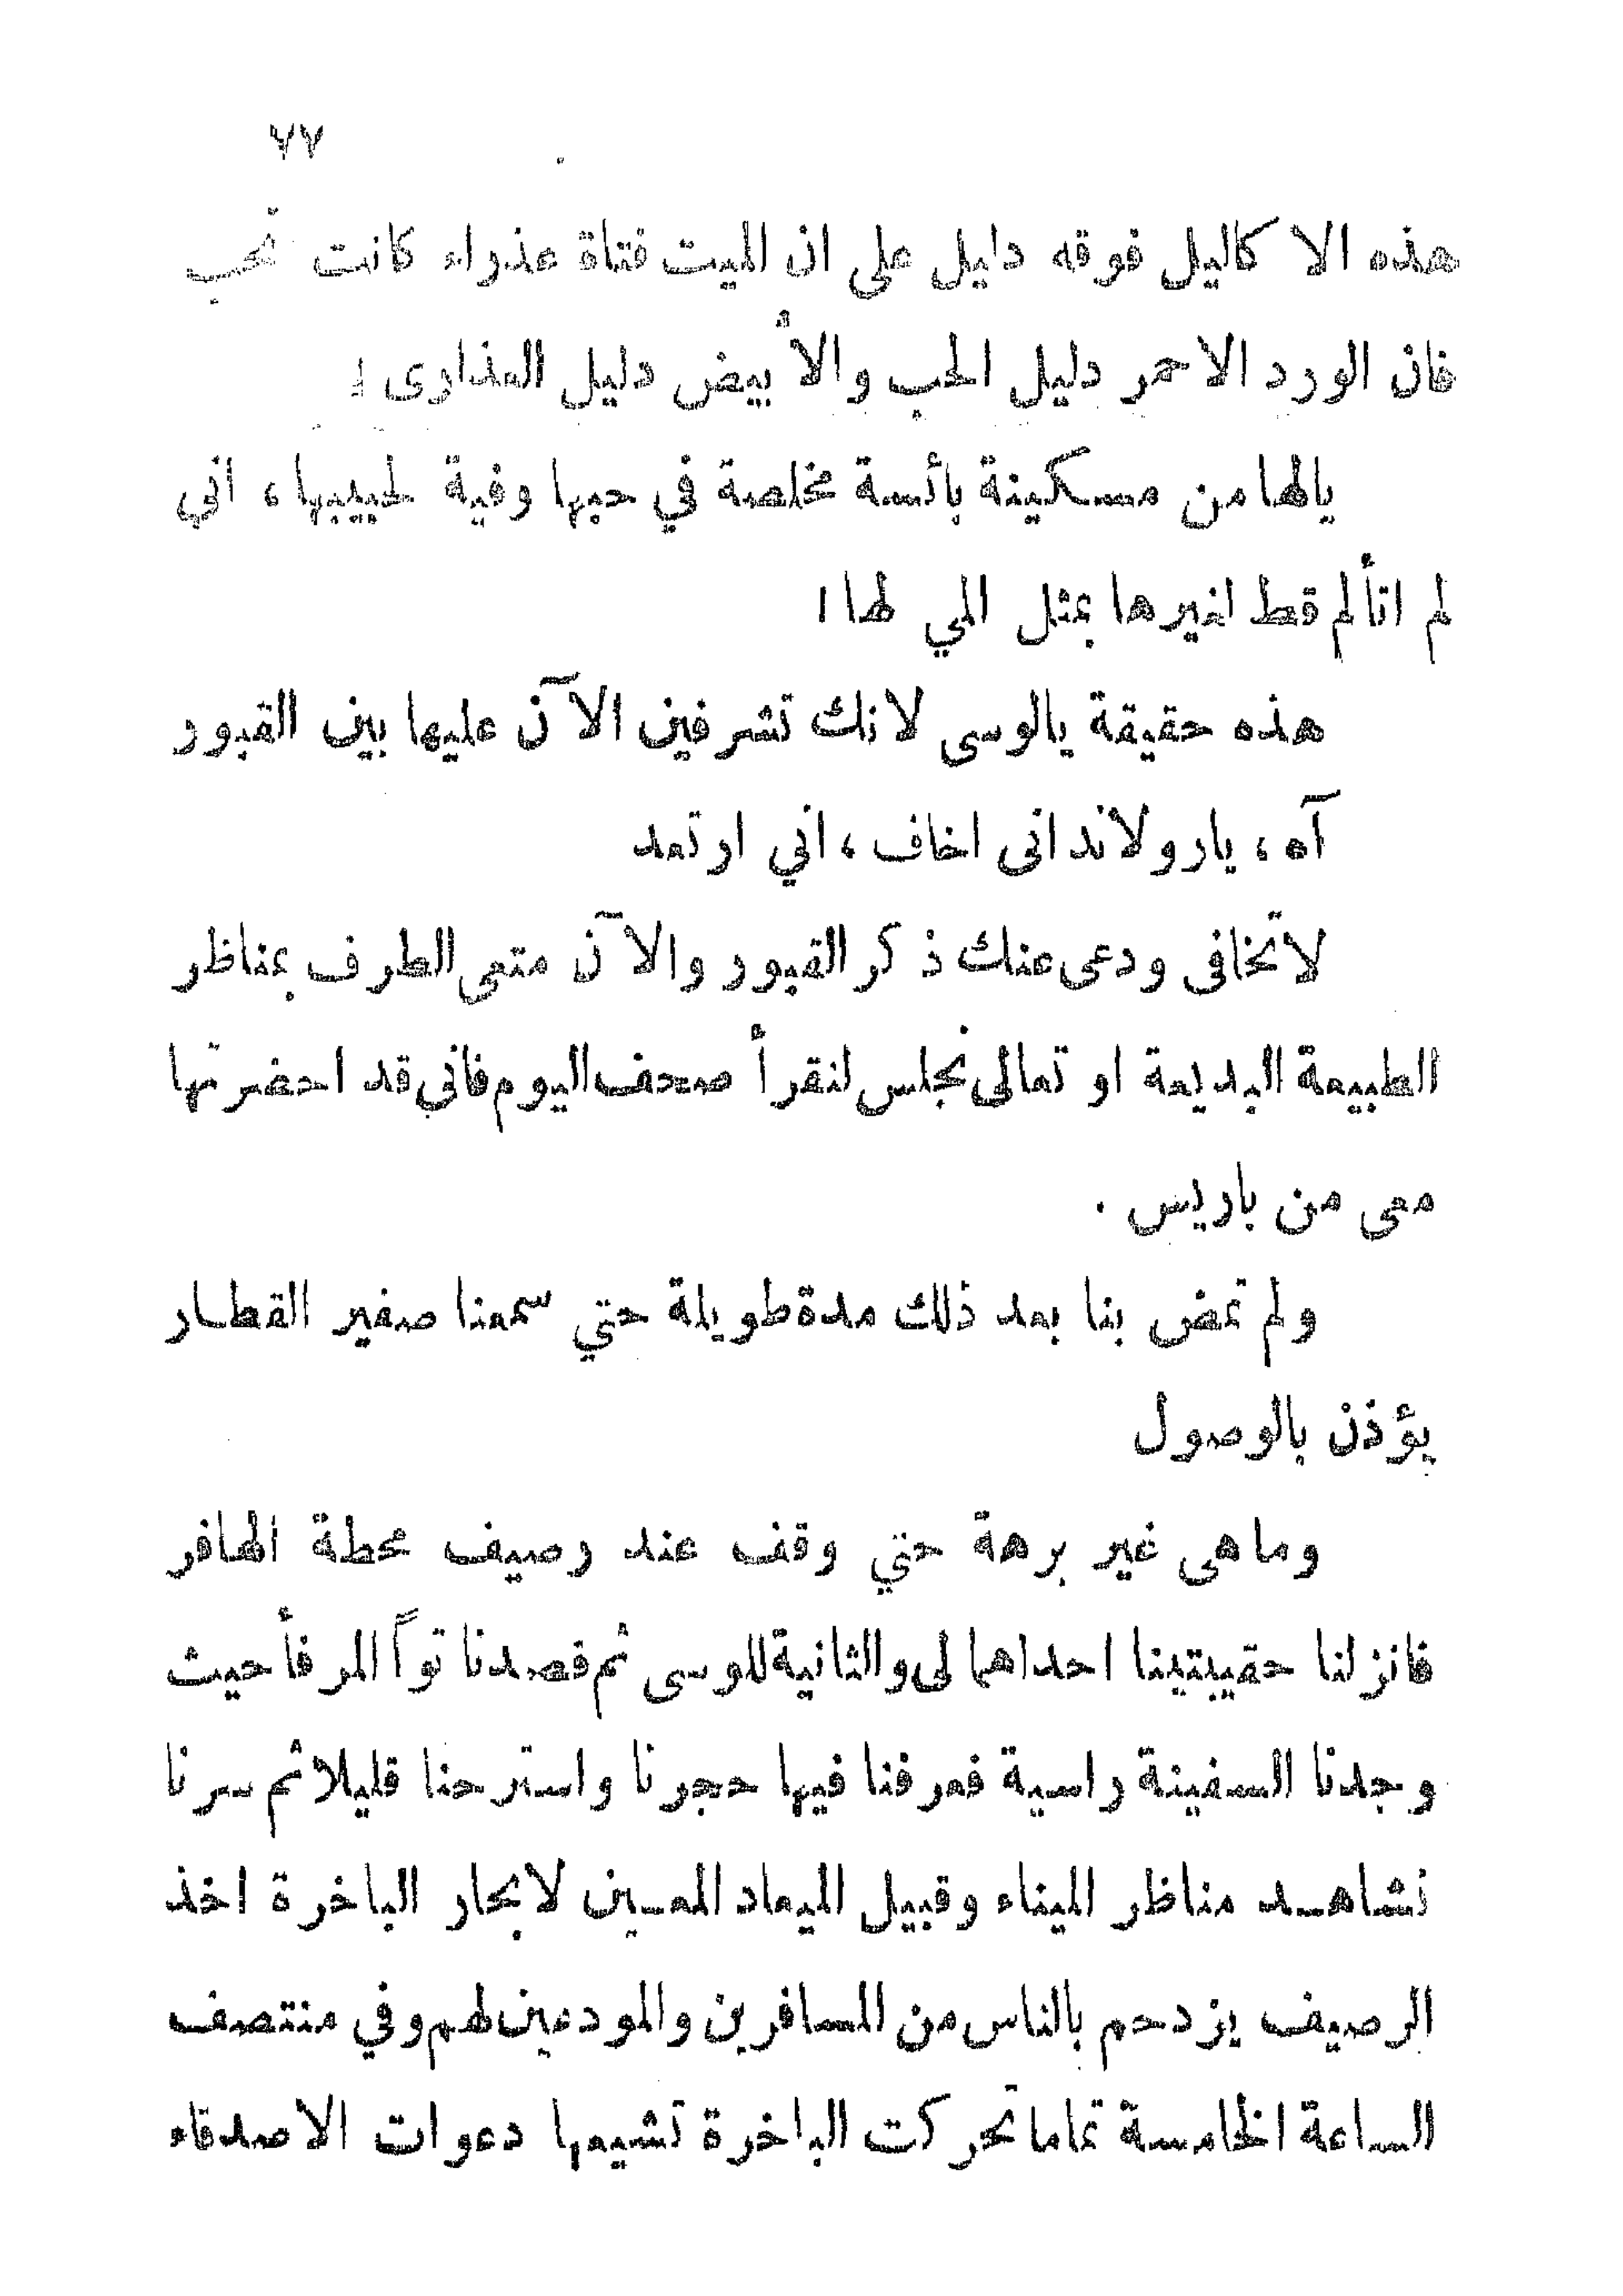 ٧٧
هذه الاكاليل فوقه دليل على ان الميت فتاة عذراء كانت تحب
فان الورد الاحمر دليل الحب والأبيض دليل العذارى !
يالها من مسكينة بائسة مخلصة في حبها وفية لحبيبها ، اني
لم اتألم قط لغيرها بمثل المي لها !
هذه حقيقة يالوسى لانك تشرفين الآن عليها بين القبور
آه ، يارولاند انى اخاف ، اني ارتعد
لا تخافى ودعى عنك ذكر القبور والآن متعى الطرف بمناظر
الطبيعة البديعة او تعالى نجلس لنقرأ صحف اليوم فانى قد احضرتها
معى من باريس .
ولم تمض بنا بعد ذلك مدة طويلة حتي سمعنا صفير القطار
يؤذن بالوصول
وما هى غير برهة حتي وقف عند رصيف محطة الهافر
فانزلنا حقيبتينا احداهما لى والثانية للوسى ثم قصدنا تواً المرفأ حيث
وجدنا السفينة راسية فعرفنا فيها حجرنا واسترحنا قليلا ثم سرنا
نشاهد مناظر الميناء وقبيل الميعاد المعين لابحار الباخرة اخذ
الرصيف يزدحم بالناس من المسافرين والمودعين لهم وفي منتصف
الساعة الخامسة تماما تحركت الباخرة تشيعها دعوات الاصدقاء